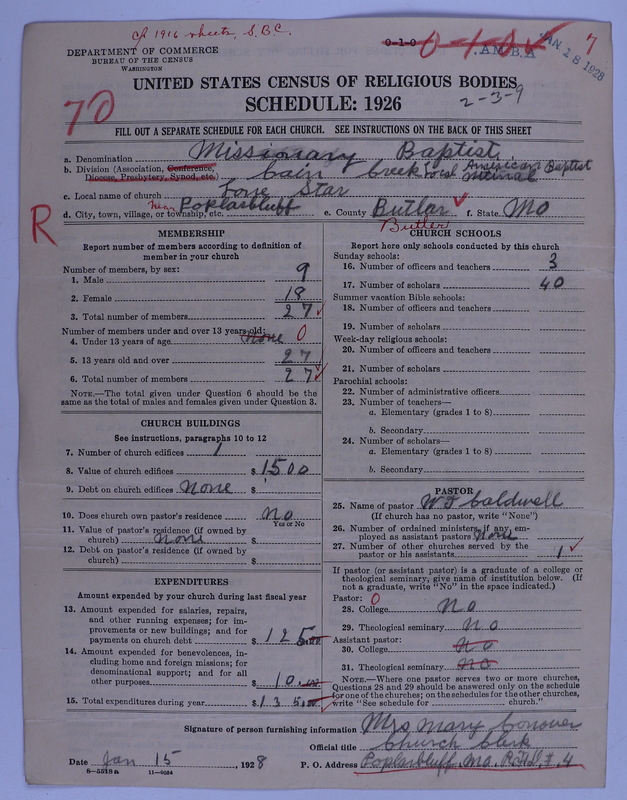 cf 1916 sheets, S.B.C.
0-1-0
0-1-0
A.M.B.A
JAN 18 1928
7
DEPARTMENT OF COMMERCE
BUREAU OF THE CENSUS
WASHINGTON
UNITED STATES CENSUS OF RELIGIOUS BODIES
SCHEDULE: 1926
2-3-9
70
FILL OUT A SEPARATE SCHEDULE FOR EACH CHURCH. SEE INSTRUCTIONS ON THE BACK OF THIS SHEET
a. Denomination Missionary Baptist
b. Division (Association, Conference, Diocese, Presbytery, Synod, etc.) Cain Creek Local American Baptist
c. Local name of church Lone Star
d. City, town, village, or township, etc. near Poplarbluff e. County Butlar f. State Mo
Butler
R
MEMBERSHIP
Report number of members according to definition of
member in your church
Number of members, by sex:
1. Male 9
2. Female 18
3. Total number of members 27
Number of members under and over 13 years old:
4. Under 13 years of age none 0
5. 13 years old and over 27
6. Total number of members 27
NOTE.—The total given under Question 6 should be
same as the total of males and females given under Question 3.
CHURCH BUILDINGS
See instructions, paragraphs 10 to 12
7. Number of church edifices 1
8. Value of church edifices $ 1500
9. Debt on church edifices None $
10. Does church own pastor's residence No
Yes or No
11. Value of pastor's residence (if owned by
church) None $
12. Debt on pastor's residence (if owned by
church) $
EXPENDITURES
Amount expended by your church during last fiscal year
13. Amount expended for salaries, repairs,
and other running expenses; for im-
provements or new buildings; and for
payments on church debt $ 125.00
14. Amount expended for benevolences, in-
cluding home and foreign missions; for
denominational support; and for all
other purposes $ 10.00
15. Total expenditures during year $ 135.00
CHURCH SCHOOLS
Report here only schools conducted by this church
Sunday schools:
16. Number of officers and teachers 3
17. Number of scholars 40
Summer vacation Bible schools:
18. Number of officers and teachers
19. Number of scholars
Week-day religious schools:
20. Number of officers and teachers
21. Number of scholars
Parochial schools:
22. Number of administrative officers
23. Number of teachers—
a. Elementary (grades 1 to 8)
b. Secondary
24. Number of scholars—
a. Elementary (grades 1 to 8)
b. Secondary
PASTOR
25. Name of pastor W T Caldwell
(If church has no pastor, write "None")
26. Number of ordained ministers, if any, em-
ployed as assistant pastors None
27. Number of other churches served by the
pastor or his assistants 1
If pastor (or assistant pastor) is a graduate of a college or
theological seminary, give name of institution below. (If
not a graduate, write "No" in the space indicated.)
Pastor: 0
28. College No
29. Theological seminary No
Assistant pastor:
30. College No
31. Theological seminary No
NOTE.—Where one pastor serves two or more churches,
Questions 28 and 29 should be answered only on the schedule
for one of the churches; on the schedules for the other churches,
write "See schedule for church."
Signature of person furnishing information Mrs Mary Conover
Official title Church Clerk
Date Jan 15, 1928 P. O. Address Poplarbluff, Mo. R.F.D. # 4
8—5518a 11—9084